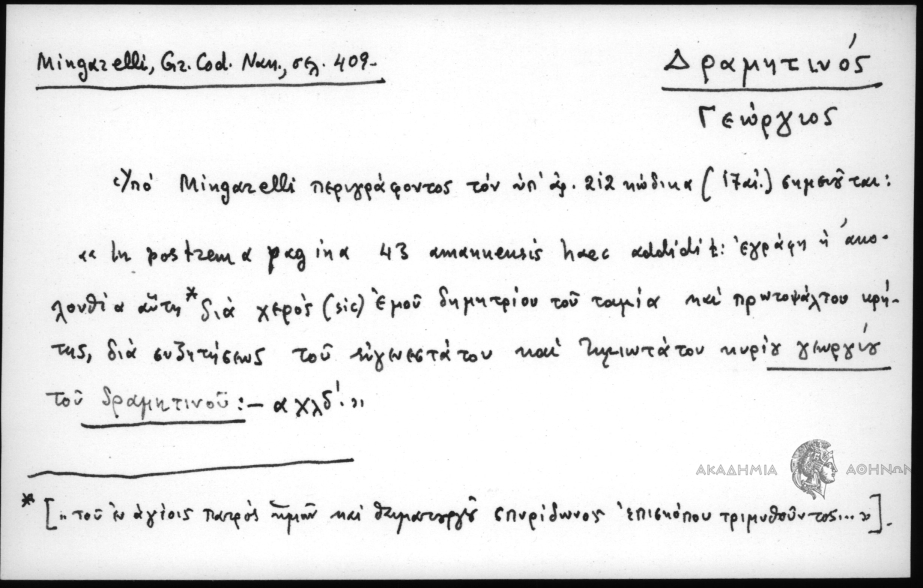 Mingarelli, Gr. Cod. Nan., σελ. 409.
Δραμητινός
Γεώργιος
Ὑπό Mingarelli περιγράφοντος τόν ὑπ' ἀρ. 212 κώδικα (17 αἰ.) σημειοῦται:
«In postrema pagina 43 amanuensis haec addidit: ἐγράφη ἡ ἀκο-
λουθία αὕτη* διά χερός (sic) ἐμοῦ δημητρίου τοῦ ταμία καί πρωτοψάλτου κρή-
της, διά συζητήσεως τοῦ εὐγενεστάτου καί τιμιωτάτου κυρίου γεωργίου
τοῦ δραμητινοῦ:— αχλδ'.»
ΑΚΑΔΗΜΙΑ ΑΘΗΝΩΝ
* [„τοῦ ἐν ἁγίοις πατρός ἡμῶν καί θαυματουργοῦ σπυρίδωνος ἐπισκόπου τριμυθοῦντος...»].